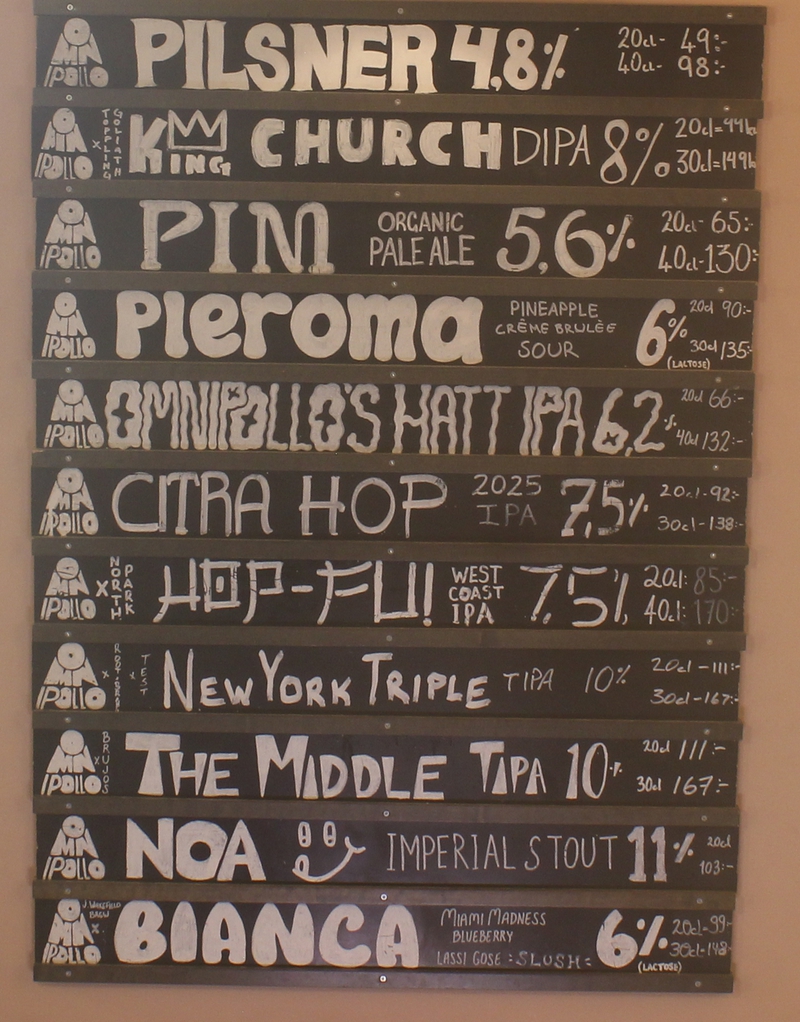 OMNIPOLLO PILSNER 4,8% 20cl- 49:-
40cl- 98:-
OMNIPOLLO X TOPPLING GOLIATH KING CHURCH DIPA 8% 20cl=99kr
30cl=149kr
OMNIPOLLO PIM ORGANIC PALE ALE 5,6% 20cl- 65:-
40cl-130:-
OMNIPOLLO Pleroma PINEAPPLE CRÊME BRULÈE SOUR 6% (LACTOSE) 20cl 90:-
30cl 135:-
OMNIPOLLO OMNIPOLLO'S HATT IPA 6,2% 20cl 66:-
40cl 132:-
OMNIPOLLO CITRA HOP 2025 IPA 7,5% 20cl-92:-
30cl-138:-
OMNIPOLLO X NORTH PARK HOP-FU! WEST COAST IPA 7.5% 20cl: 85:-
40cl: 170:-
OMNIPOLLO X X TEST NEW YORK TRIPLE TIPA 10% 20cl -111:-
30cl-167:-
OMNIPOLLO X BRUJOS THE MIDDLE TIPA 10% 20cl 111:-
30cl 167:-
OMNIPOLLO NOA IMPERIAL STOUT 11% 20cl
103:-
OMNIPOLLO J. WAKEFIELD BREW X BIANCA MIAMI MADNESS BLUEBERRY LASSI GOSE :SLUSH: 6% (LACTOSE) 20cl-99:-
30cl-148:-